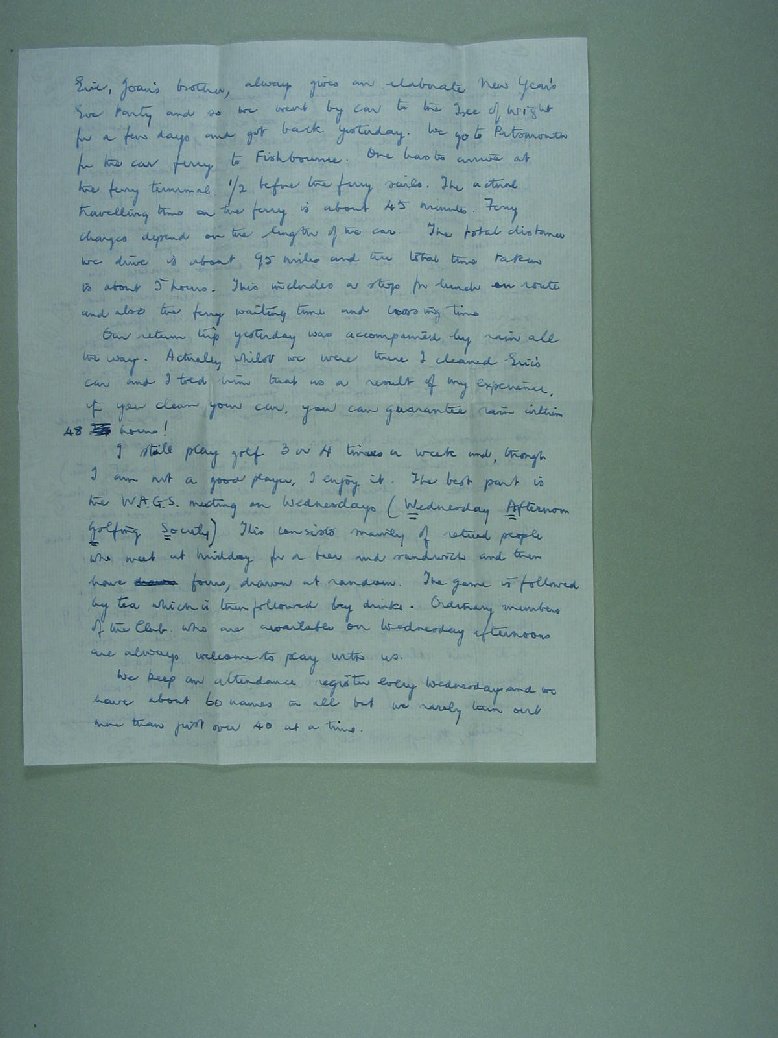 Eric, Joan's brother, always gives an elaborate New Year's
Eve Party and so we went by car to the Isle of Wight
for a few days and got back yesterday. We go to Portsmouth
for the car ferry to Fishbourne. One has to arrive at
the ferry terminal 1/2 before the ferry sails. The actual
travelling time on the ferry is about 45 minutes. Ferry
charges depend on the length of the car. The total distance
we drive is about 95 miles and the total time taken
is about 5 hours. This includes a stop for lunch en route
and also the ferry waiting time and crossing time
Our return trip yesterday was accompanied by rain all
the way. Actually, whilst we were there I cleaned Eric's
car and I told him that as a result of my experience,
if you clean your car, you can guarantee rain within
48 hours!
I still play golf 3 or 4 times a week and, though
I am not a good player, I enjoy it. The best part is
the W.A.G.S. meeting on Wednesdays (Wednesday Afternoon
Golfing Society) This consists mainly of retired people
who meet at midday for a beer and sandwich and then
have fours, drawn at random. The game is followed
by tea which is then followed by drinks. Ordinary members
of the Club who are available on Wednesday afternoons
are always welcome to play with us.
We keep an attendance register every Wednesday and we
have about 60 names in all but we rarely turn out
more than just over 40 at a time.